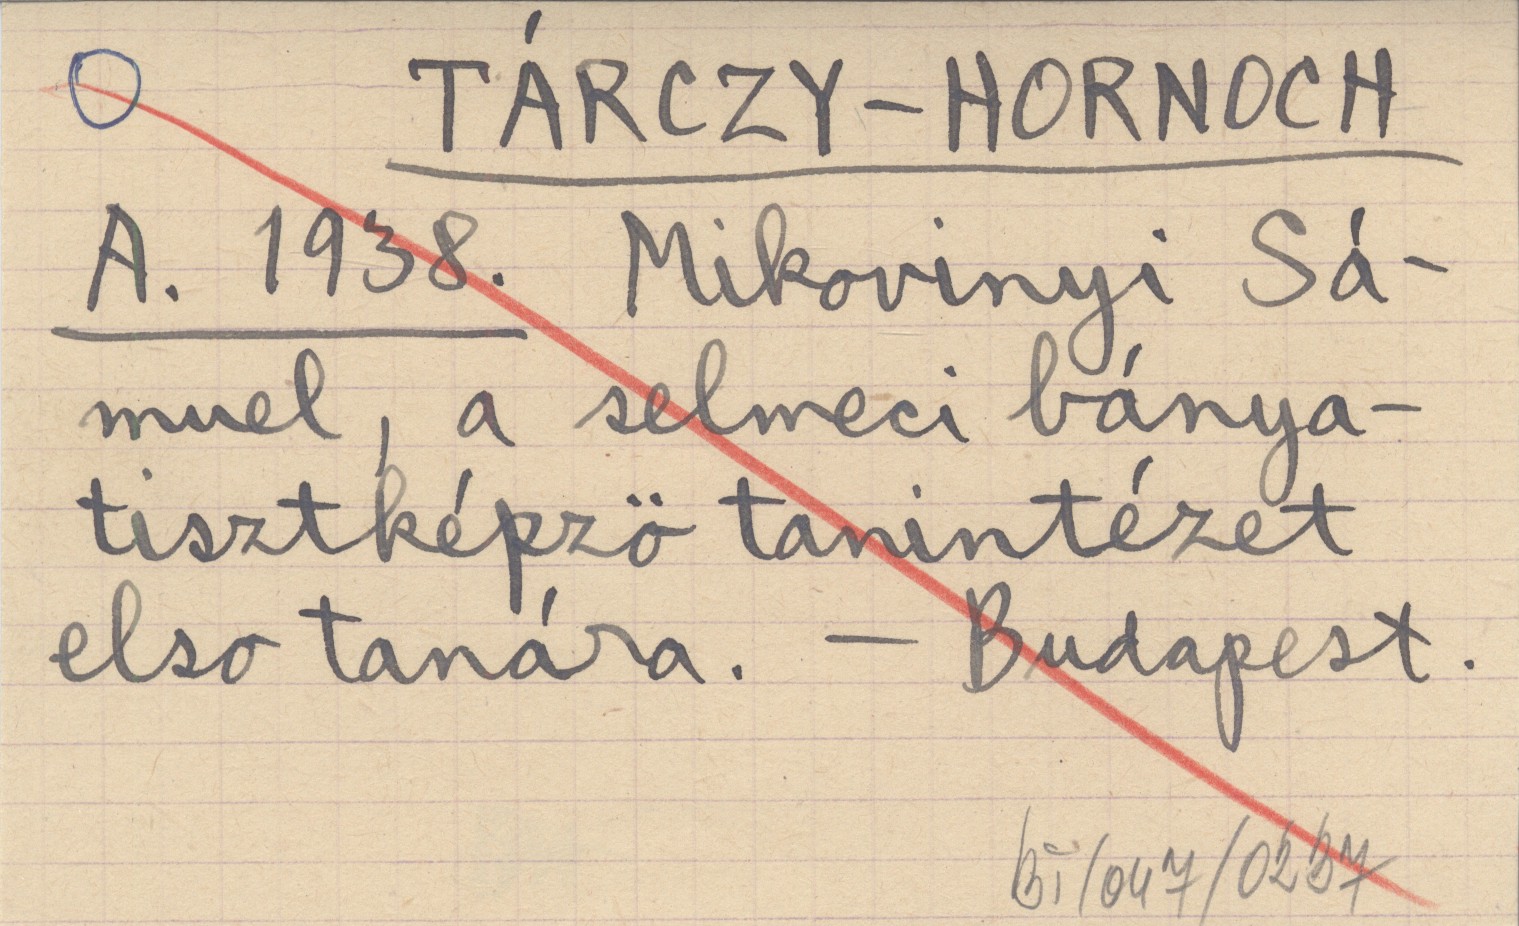 TÁRCZY-HORNOCH
A. 1938. Mikovinyi Sá-
muel, a selmeci bánya-
tisztképzö tanintézet
elso tanára. — Budapest.